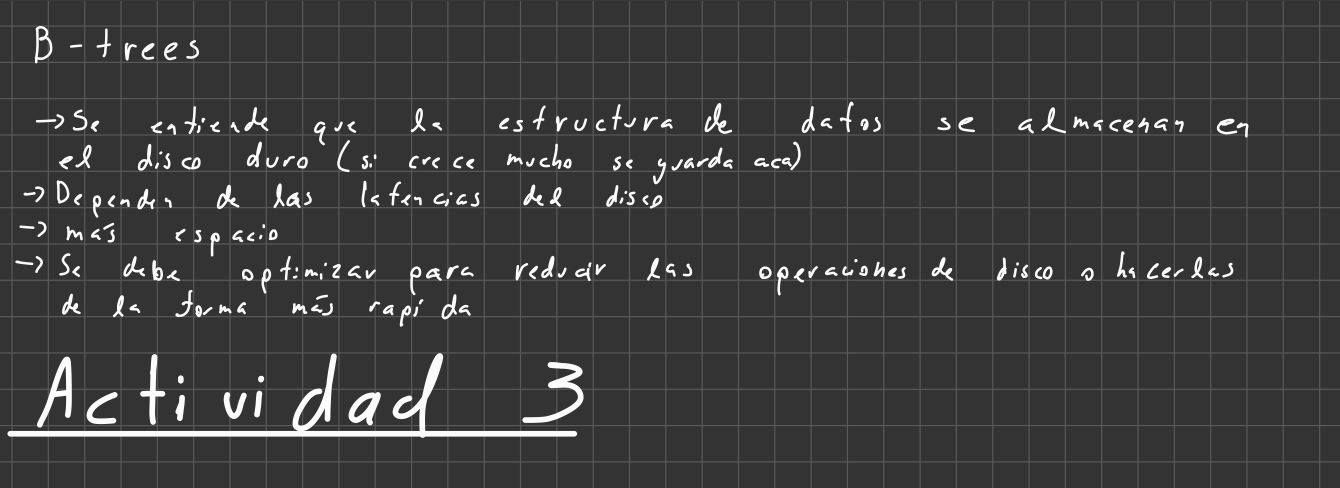 B-trees
→ Se entiende que la estructura de datos se almacenan en
el disco duro (si crece mucho se guarda aca)
→ Dependen de las latencias del disco
→ más espacio
→ Se debe optimizar para reducir las operaciones de disco o hacerlas
de la forma más rapída
Actividad 3